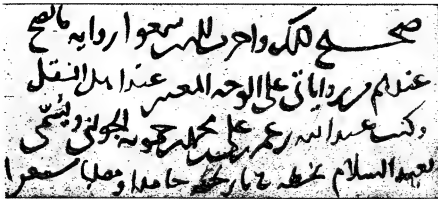 صحيح ذلك واجزت لهم ان يرووا رواية ما يصح
عندهم من رواياتي على الوجه المعتبر عند اهل النقل
وكتب عبد الله بن عمر بن علي بن محمد بن حمويه الجويني ويسمى
بعبد السلام بخطه في تاريخه حامدا ومصليا